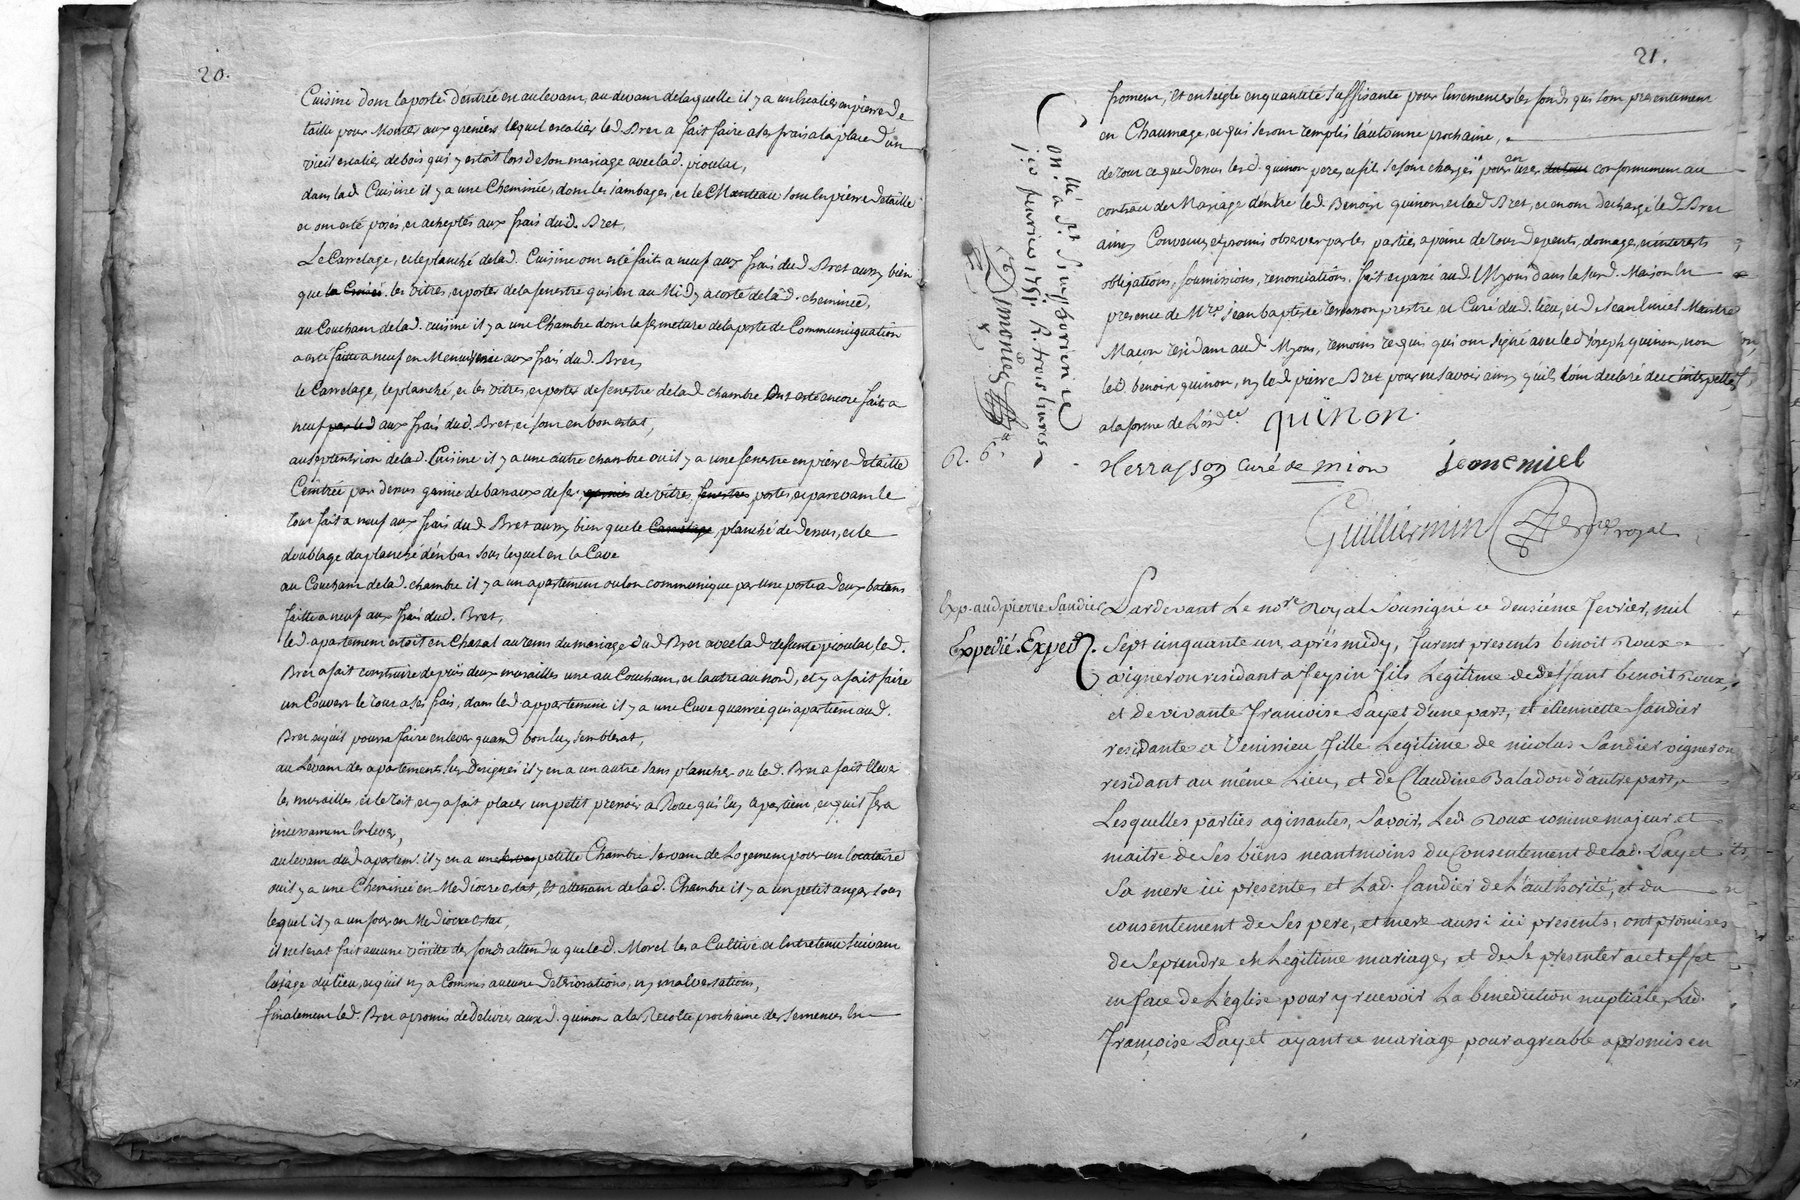 20.
Cuisine dont la porte d'entrée en au levant, au devant de laquelle il y a un Escalier en pierre de
taille pour Monter aux greniers lequel escalier led Bret a fait faire a ses frais a la place d'un
vieil escalier de bois qui y estoit lors de son mariage avec lad. pioulat,
dans lad. Cuisine il y a une Cheminée, dont les jambages, et le Manteau sont en pierre de taille
et ont esté posés, et acheptés aux frais dud. Bret,
Le Carrelage, et le planché de lad. Cuisine ont esté faits a neuf aux frais dud Bret aussy bien
que les vitres, et portes de la fenestre qui est au Midy a costé de lad. cheminée,
au Couchant de lad. cuisine il y a une Chambre dont la fermeture de la porte de Communiquation
a esté faitte a neuf en Menuiserie aux frais dud. Bret,
le Carrelage, le planché, et les vitres, et portes de fenestre de lad chambre ont esté encore fait a
neuf par led aux frais dud. Bret et sont en bon estat,
au septentrion de lad. Cuisine il y a une autre chambre ou il y a une fenestre en pierre de taille
Ceintrée par dessus garnie de barraux de fer, garnies de vitres, fenestres portes et paravant le
tout fait a neuf aux frais dud Bret aussy bien que le Carrelage, planché de dessus, et le
doublage du planché d'en bas sous lequel en la Cave
au Couchant de lad. chambre il y a un apartement ou lon communique par une porte a deux batans
faitte a neuf aux frais dud. Bret,
led apartement estoit en Chazal au tems du mariage dud Bret avec lad defunte pioulat, led.
Bret a fait construire depuis deux murailles une au Couchant, et l'autre au nord, et y a fait faire
un Couvert le tout a ses frais, dans led appartement il y a une Cuve quarrée qui apartient aud.
Bret, et qu'il pourra faire enlever quand bon luy semblerat,
au Levant des apartements sus Designés il y en a un autre sans plancher ou led. Bret a fait Elever
les murailles, et le toit, et y a fait placer un petit pressoir a Roue qui luy apartient, et qu'il fera
incessament Enlever,
au levant dud apartem. il y en a une petitte Chambre servant de Logement pour un locataire
ou il y a une Cheminée en Mediocre estat, Et attenant de lad. Chambre il y a un petit angar sous
lequel il y a un four en Mediocre Estat,
il ne serat fait aucune visitte des fonds attendu que led. Morel les a Cultivé et Entretenu suivant
l'usage du lieu, et qu'il ny a Commis aucune deteriorations, ny malversations,
finalement led. Bret a promis de delivrer auxd. quinon a la Recolte prochaine des semences En
21.
froment, et en seigle en quantité suffisante pour Ensemencer les fonds qui sont presentement
en Chaumage, et qui seront remplis l'automne prochaine,
de tout ce que dessus lesd. quinon pere, et fils se sont chargés pour en user conformement au
contract de Mariage d'entre led Benoist quinon, et lad Bret, et en ont dechargé led Bret
ainsy Convenu et promis observer par les parties a peine de tous depents, domage, et interests
obligations, soumissions, renonciations. fait et passé aud Myons dans la susd. Maison En
presence de Mre jean baptiste terrasson prestre et Curé dud. lieu, et de jean Emiel Maistre
Macon residant aud Myons, temoins requis qui ont signé avec led joseph quinon, non
led benoist quinon, ny led pierre Bret pour ne savoir ainsy qu'ils l'ont declaré de ce interpellés
a la forme de L'ordce
quinon.
terrasson curé de mion
jeanemiel
Guilliermin
nre royal
Conllé a St. Simphorien le
jer fevrier 1751. R. trois livres
Dimonet
R. 6s.
Exp. aud pierre Sandier
Expedié. Exped.
Pardevant Le nore Royal Soussigné ce deuxiéme fevrier, mil
Sept cinquante un, aprés midy, furent presents benoit Roux
vigneron residant a feysin fils Legitime de deffunt benoit Roux,
et de vivante francoise Payet, d'une part, et etiennette Sandier
residante a Venissieu fille Legitime de nicolas Sandier vigneron
residant au même Lieu, et de Claudine Baladou d'autre part,
Lesquelles parties agissantes, Savoir, Led. Roux comme majeur et
maitre de Ses biens neantmoins du Consentement de lad. Payet
Sa mere ici presente, et Lad. Sandier de L'authorité, et du
consentement de Ses pere, et mere aussi ici presents, ont promis
de Se prendre en Legitime mariage, et de Se presenter a cet effet
en face de L'eglise pour y recevoir La benediction nuptiale, Lad.
françoise Payet ayant ce mariage pour agreable a promis en